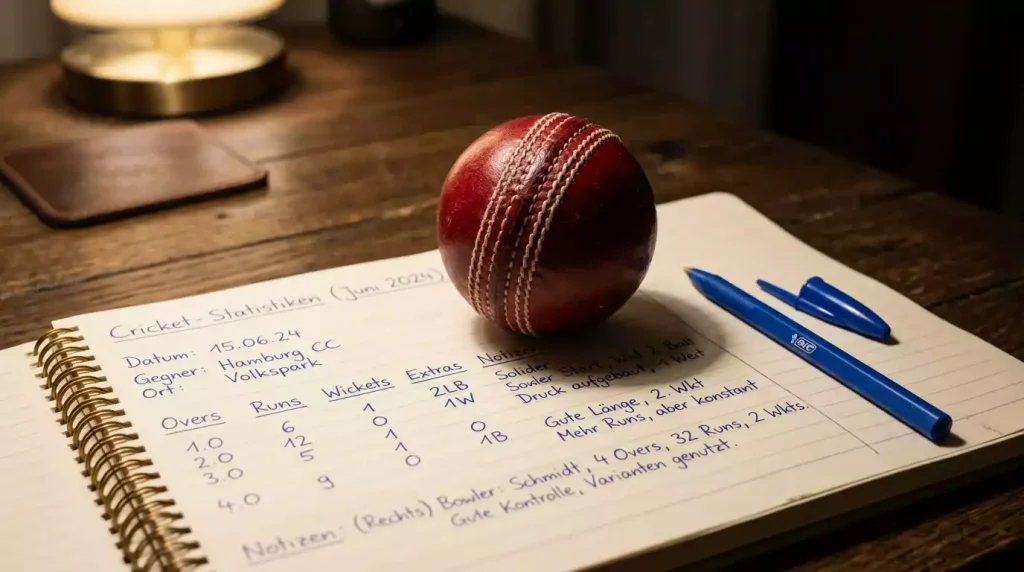 Cricket-Statistiken (Juni 2024)
Datum: 15.06.24
Gegner: Hamburg CC
Ort: Volkspark
Overs Runs Wickets Extras Notizen
1.0 6 1 2LB Solider Start, 2. Ball
2.0 12 0 1W Druck aufgebaut, 1 Weit
3.0 5 1 0 Gute Länge, 2. Wkt
4.0 9 0 1B Mehr Runs, aber konstant
Notizen: (Rechts) Bowler: Schmidt, 4 Overs, 32 Runs, 2 Wkts.
Gute Kontrolle, Varianten genutzt.
BIC